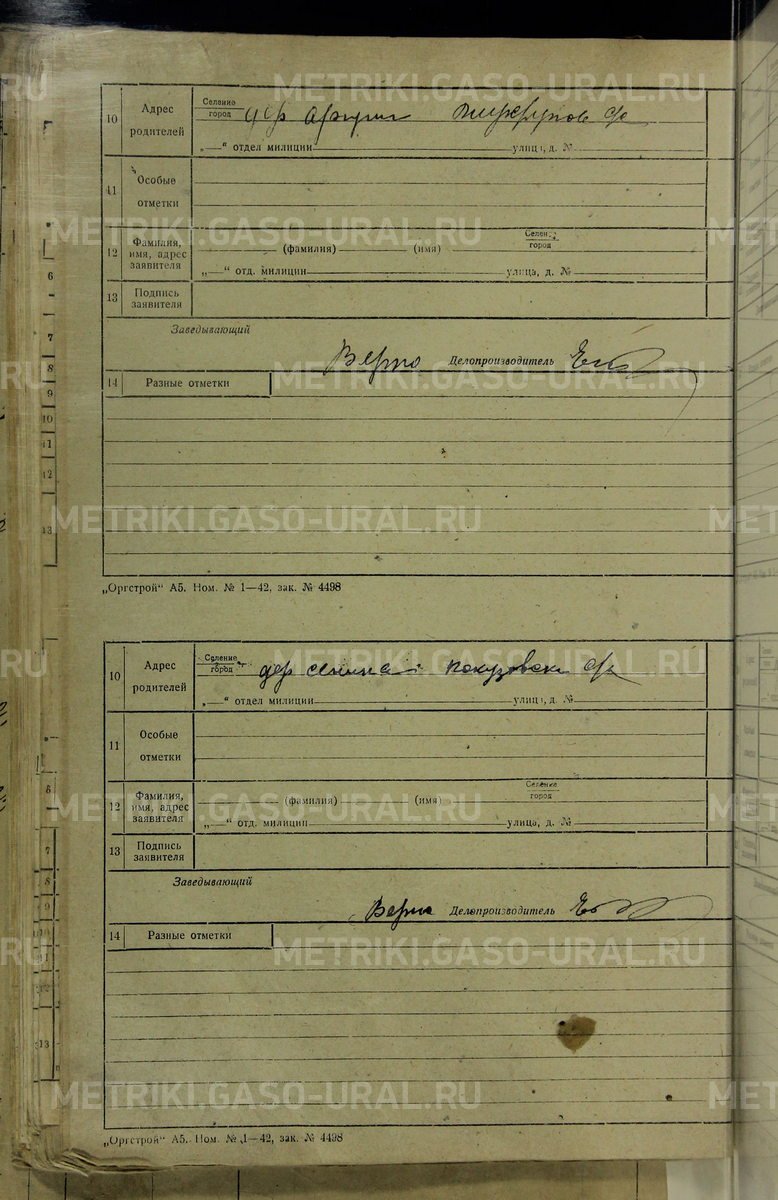 10 Адрес родителей
Селение
город
дер
с/с
„—“ отдел милиции улица, д. №
11 Особые отметки
12 Фамилия, имя, адрес заявителя
(фамилия) (имя)
Селение
город
„—“ отд. милиции улица, д. №
13 Подпись заявителя
Заведывающий
Верно Делопроизводитель
14 Разные отметки
„Оргстрой“ А5. Ном. № 1—42, зак. № 4498
10 Адрес родителей
Селение
город
дер
с/с
„—“ отдел милиции улица, д. №
11 Особые отметки
12 Фамилия, имя, адрес заявителя
(фамилия) (имя)
Селение
город
„—“ отд. милиции улица, д. №
13 Подпись заявителя
Заведывающий
Верно Делопроизводитель
14 Разные отметки
„Оргстрой“ А5. Ном. № 1—42, зак. № 4498
6
7
8
9
10
11
12
13
8
7
8
9
10
13
METRIKI.GASO-URAL.RU